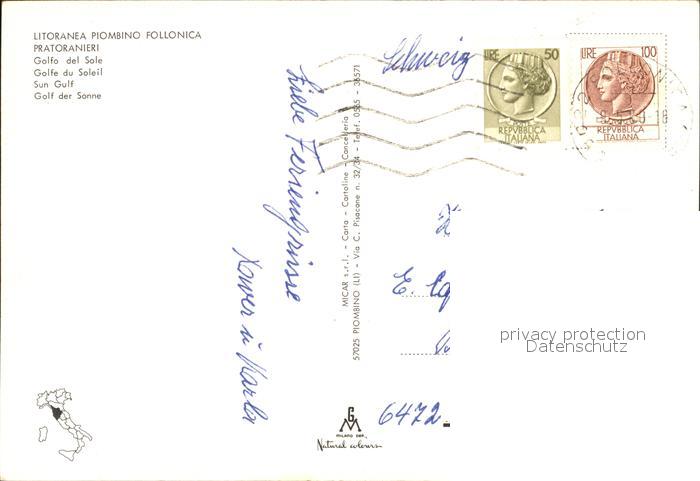 LITORANEA PIOMBINO FOLLONICA
PRATORANIERI
Golfo del Sole
Golfe du Soleil
Sun Gulf
Golf der Sonne
Schweiz
LIRE 50
POSTE
REPVBBLICA
ITALIANA
LIRE 100
REPVBBLICA
ITALIANA
Liebe Feriengrüsse
Xaver u Karla
MICAR s.r.l. - Carta - Cartoline - Cancelleria
57025 PIOMBINO (LI) - Via C. Pisacane n. 32/34 - Telef. 0565 - 36571
E.
6472
privacy protection
Datenschutz
G
M
MILANO DEP.
Natural colours